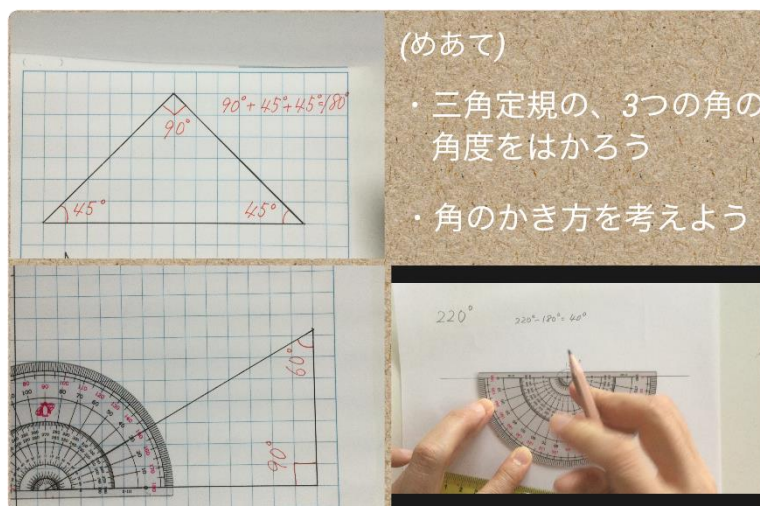 90°+45°+45°=180°
90°
45°
45°
(めあて)
・三角定規の、3つの角の
角度をはかろう
・角のかき方を考えよう
60°
90°
220°
220°-180°=40°